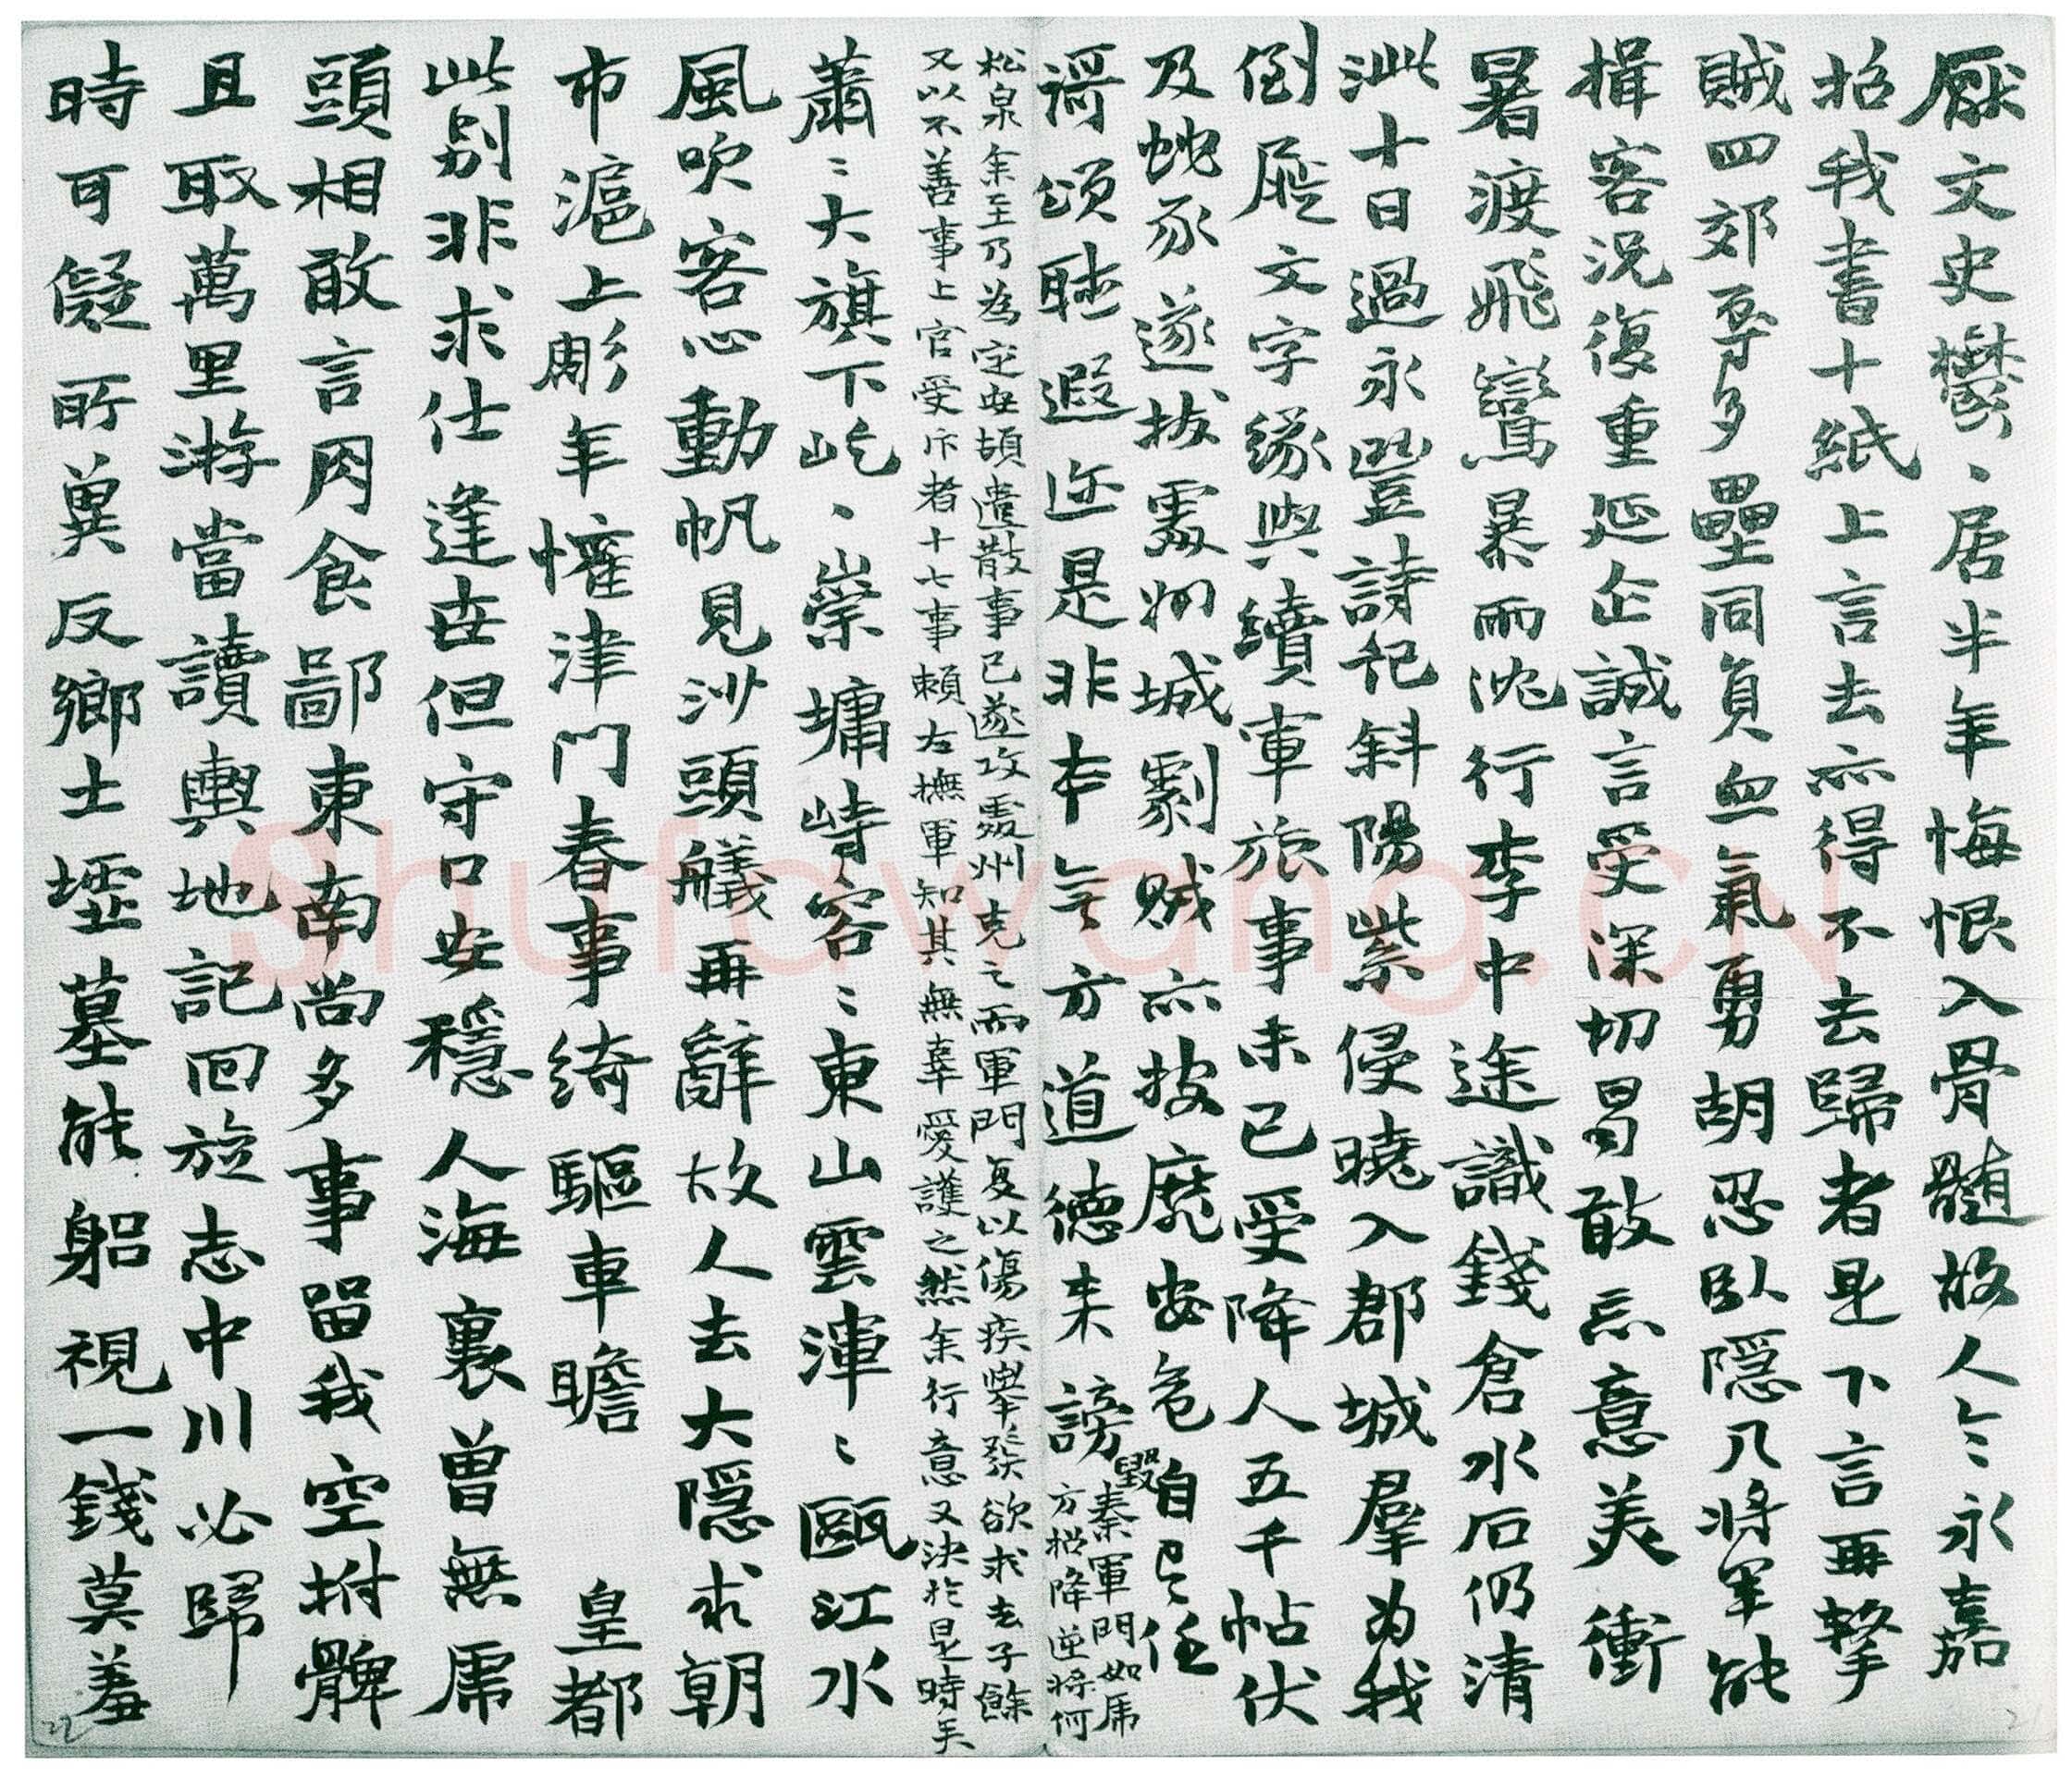 厭文史鬱、居半年悔恨入骨髓故人令永嘉
招我書十紙上言去亦得不去歸者是下言再擎
賊四郊辱多壘同負血氣勇胡忍臥隱几將軍能
揖客況復重延企誠言受深切曷敢忘意美衝
暑渡飛鸞暴雨沈行李中途識錢倉水石仍清
泚十日過永豐詩記斜陽紫侵曉入郡城群為我
倒屣文字緣與續軍旅事未已受降人五千帖伏
及蛇豕遂拔處州城劇賊亦披靡安危自已任
謌頌聽遐迩是非本無方道德來謗毀
秦軍門如席
方招降逆將何
松泉余至乃為定安頓遣散事已遂攻處州克之而軍門复以傷疾舉發欲求去子餘
又以不善事上官受斥者十七事賴左撫軍知其無辜愛護之然余行意又決於是時矣
蕭〻大旗下屹、崇墉峙容〻東山雲渾〻甌江水
風吹客心動帆見沙頭艤再辭故人去大隱求朝
市滬上彫年懽津門春事綺驅車瞻 皇都
此別非求仕逢世但守口安穩人海裏曾無席
頭相敢言肉食鄙東南尚多事留我空拊髀
且取萬里游當讀輿地記回旋志中川必歸
時可儗所冀反鄉土壟墓能躬視一錢莫羞
Shufawang.CN
22
21